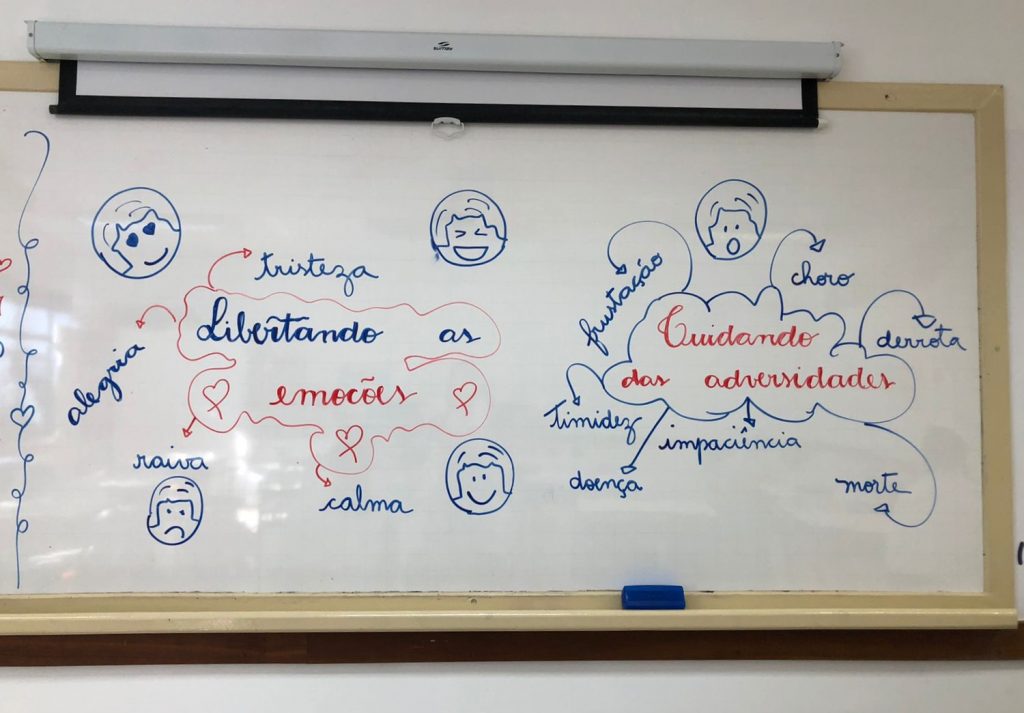 SUMAY
tristeza
Libertando as
emocões
alegria
raiva
calma
frustação
choro
Cuidando
das adversidades
derrota
timidez
impaciência
doença
morte